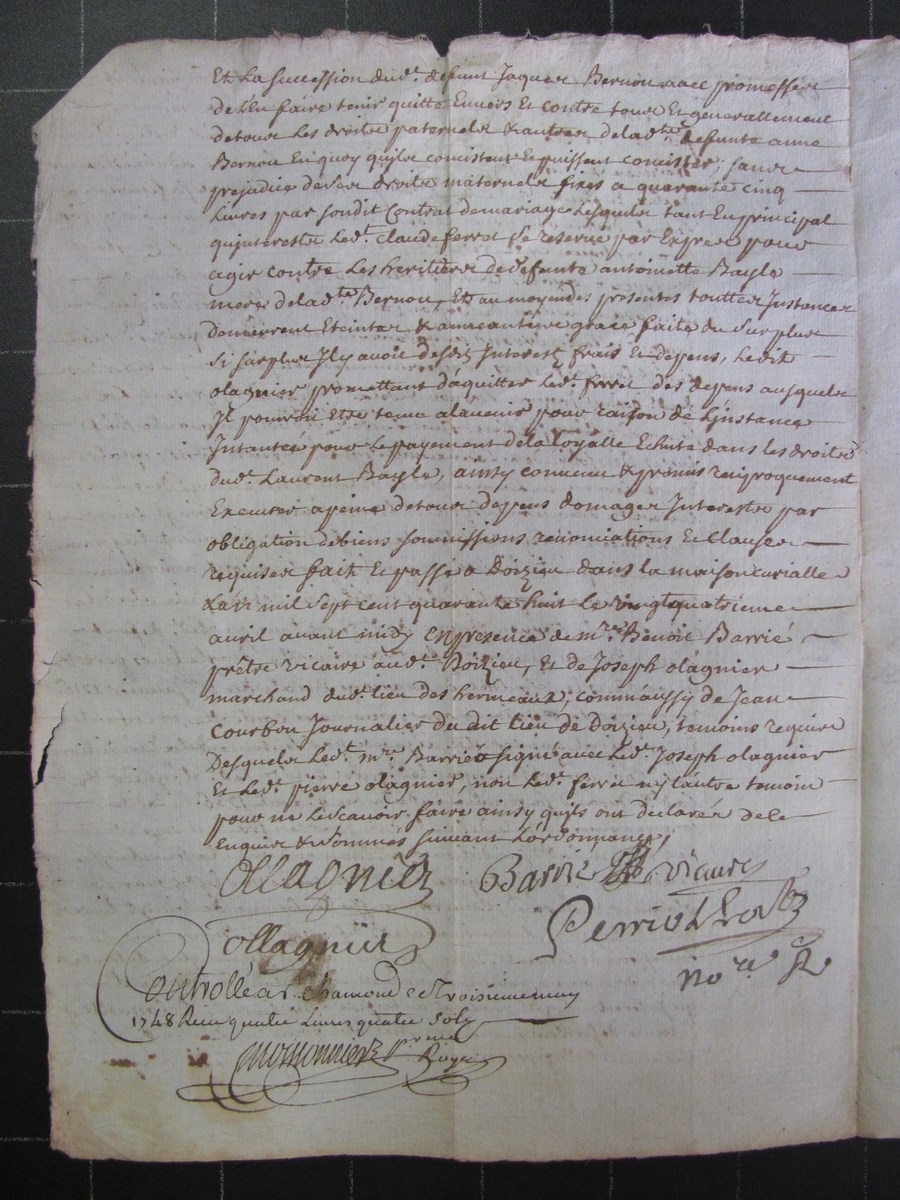 Et La succession dud.t defunt Jaques Bernou avec promesses
de L'en faire tenir quitte Envers Et contre tous Et generallement
de tous Les droits paternels & autres de lad.te defunte anne
Bernou En quoy qu'ils consistent Et puissent consister, sans
prejudice de Ses droits maternels fixés a quarante cinq
Livres par sondit Contrat de mariage Lesquels tant En principal
qu'interests Led.t Claude ferret Se reserve par Exprès pour
agir contre Les heritiers de defunte antoinette Bayle
mere de lad.te Bernou, Et au moyen des presentes touttes Instances
demeurent Eteintes & aneanties grace faite du Surplus
Si surplus Il y avoit desd.s Interests frais Et depens, Ledit
olagnier promettant d'aquitter Led.t ferret des depens ausquels
Il pourroit Etre tenu a L'avenir pour raison de L'instance
Intantée pour Le payement de la Loyalle Echute dans les droits
dud.t Laurent Bayle, ainsy convenu & promis reciproquement
Executer a peine de tous depens domages Interests par
obligation de biens soumissions renonciations Et Clauses
requises fait Et passé a Doizieu dans la maison curialle
L'an mil Sept cent quarante huit Le vingtquatrieme
avril avant midy En presence de m.re Benoit Barrié
prêtre vicaire aud.t Doizieu, Et de Joseph olagnier
marchand dud.t lieu des hermeaux, comm'aussy de Jean
Courbon Journalier du dit Lieu de Doizieu, temoins requis
Desquels Led.t m.re Barrié a signé avec Led.t Joseph olagnier
Et Led.t pierre olagnier, non Led.t ferret ny L'autre temoin
pour ne Le Scavoir faire ainsy qu'ils ont déclarés de ce
Enquis & Sommés suivant L'ordonnance,
Ollagnier Barrié vicaire
ollagniier
no.re R
Controllé a S. Chamond ce troisieme may
1748 Receu quatre Livres quatre Sols